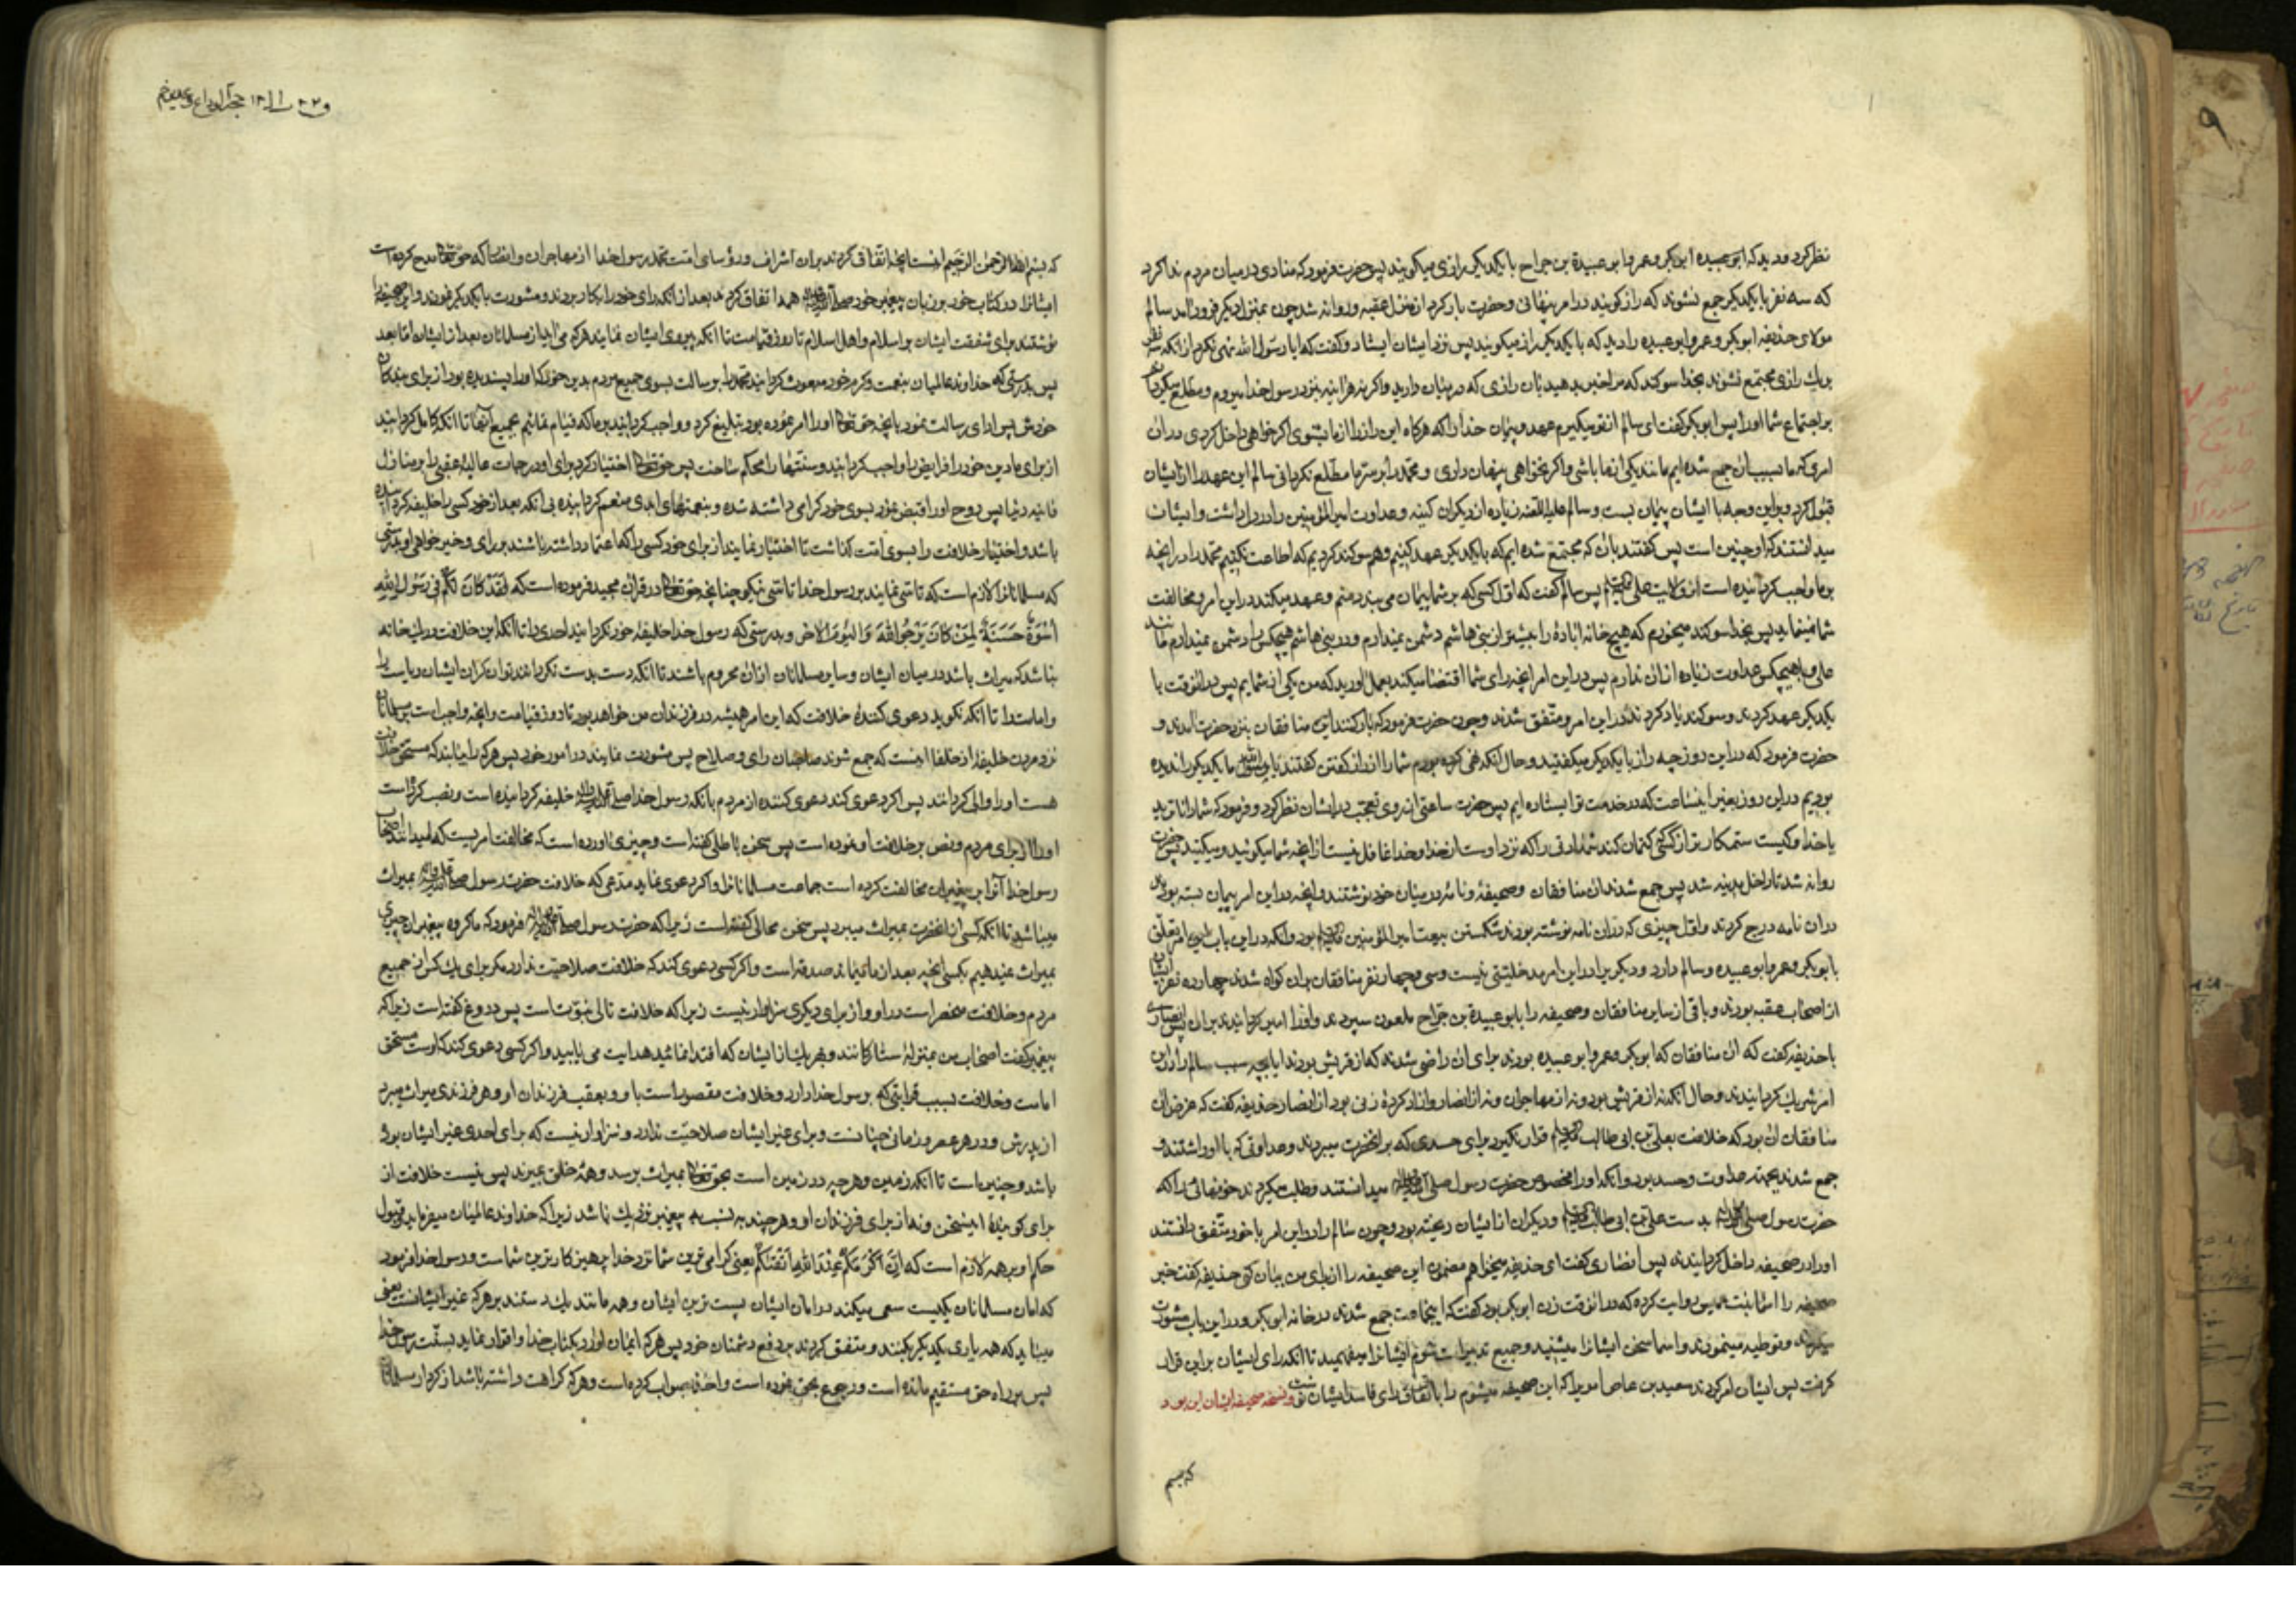 نظر کرد و دید که ابو عبیده ابوبکر و عمر و ابو عبیدة بن جراح با یکدیکر رازی میکویند پس حضرت فرمود که منادی در میان مردم ندا کرد
که سه نفر با یکدیکر جمع نشوند که راز کویند در امر پنهانی و حضرت بار کرد از منزل عقبه و روانه شد چون بمنزل دیکر فرود آمد سالم
مولای حذیفه ابوبکر و عمر و ابو عبیده را دید که با یکدیکر راز میکویند پس نزد ایشان ایستاد و کفت که ایا رسول الله نهی نکرد از آنکه سه نفر
بر یك رازی مجتمع نشوند بخدا سوکند که مرا خبر بدهید بآن رازی که در میان دارید و اکر نه هر اینه بنزد رسول خدا میروم و مطلع میکردانم
بر اجتماع شما او را پس ابوبکر کفت ای سالم از تو میکیرم عهد و پیمان خدا را که هرکاه این راز را از ما بشنوی اکر خواهی داخل کردی در آن
امری که ما بسبب آن جمع شده ایم مانند یکی از ما باشی و اکر نخواهی پنهان داری و محمد را بر سر ما مطلع نکردانی سالم این عهد را از ایشان
قبول کرد و براین وجه با ایشان پیمان بست و سالم علیه اللعنه زیاده از دیکران کینه و عداوت امیر المؤمنین را در دل داشت و ایشان
میدانستند که او چنین است پس کفتند بآن که مجتمع شده ایم که با یکدیکر عهد کنیم و هم سوکند کردیم که اطاعت نکنیم محمد را در آنچه
بر ما واجب کردانیده است از ولایت علی پس سالم کفت که اول کسی که بر شما پیمان می بندد منم و عهد میکند در این امر و مخالفت
شما نمینماید پس بخدا سوکند میخورم که هیچ خانه ابادهٔ را بیشتر از بنی هاشم دشمن نمیدارم و در بنی هاشم هیچکس را دشمن نمیدارم مانند
علی و با هیچکس عداوت زیاده از آن ندارم پس در این امر آنچه رای شما اقتضا میکند بعمل اورید که من یکی از شمایم پس در آنوقت با
یکدیکر عهد کردند و سوکند یاد کردند در این امر و متفق شدند و چون حضرت فرمود که بار کنند این منافقان بنزد حضرت آمدند و
حضرت فرمود که در این روز چه راز با یکدیکر میکفتید و حال آنکه نهی کرده بودم شما را از راز کفتن کفتند یا رسول الله ما یکدیکر را ندیده
بودیم در این روز بغیر اینساعت که در خدمت تو ایستاده ایم پس حضرت ساعتی از روی تعجب در ایشان نظر کرد و فرمود که شما داناترید
یا خدا و کیست ستمکارتر از کسی که کتمان کند شهادتی را که نزد اوست از خدا و خدا غافل نیست از آنچه شما میکوئید و میکنید پس حضرت
روانه شد تا داخل مدینه شد پس جمع شدند آن منافقان و صحیفهٔ و نامهٔ در میان خود نوشتند و آنچه در این امر پیمان بسته بودند
در آن نامه درج کردند و اول چیزی که در آن نامه نوشته بودند شکستن بیعت امیر المؤمنین بود و آنکه در این باب این امر تعلق
بابوبکر و عمر و ابو عبیده و سالم دارد و دیکری را در این امر مدخلیتی نیست و سی و چهار نفر منافقان بر آن کواه شدند چهارده نفر ایشان
از اصحاب عقبه بودند و باقی از سایر منافقان و صحیفه را بابو عبیدة بن جراح ملعون سپردند و او را امین کردانیدند بر آن پس انصاری
با حذیفه کفت که آن منافقان که ابوبکر و عمر و ابو عبیده بودند برای آن راضی شدند که از قریش بودند ایا بچه سبب سالم را در این
امر شریك کردانیدند و حال آنکه نه از قریش بود و نه از مهاجران و نه از انصار و آزاد کردهٔ زنی بود از انصار حذیفه کفت که غرض آن
منافقان آن بود که خلافت بعلی بن ابی طالب قرار نکیرد برای حسدی که بر آنحضرت میبردند و عداوتی که با او داشتند و
جمع شدند بجهة عداوت و حسد بود و آنکه او را مخصوص حضرت رسول میدانستند و طلب میکردند خونهائی را که
حضرت رسول بدست علی بن ابی طالب و دیکران از ایشان ریخته بود و چون سالم را در این امر با خود متفق یافتند
او را در صحیفه داخل کردانیدند پس انصاری کفت ای حذیفه میخواهم مضمون این صحیفه را از برای من بیان کنی حذیفه کفت خبر
صحیفه را اسما بنت عمیس روایت کرده که در آنوقت زن ابوبکر بود کفت که اینجماعت جمع شدند در خانه ابوبکر و در این باب مشورت
میکردند و توطیه مینمودند و اسما سخن ایشانرا میشنید و جمیع تدبیرات شوم ایشانرا میفهمید تا آنکه رای ایشان براین قرار
کرفت پس ایشان امر کردند سعید بن عاص اموی را که این صحیفه میشوم را باتفاق رای فاسد ایشان نوشت و نسخه صحیفه ایشان این بود
که بسم
حجة الوداع و غدیر خم
که بسم الله الرحمن الرحیم اینست آنچه اتفاق کردند بر آن اشراف و رؤسای امت محمد رسول خدا از مهاجران و انصار که حق تعالی مدح کرده است
ایشانرا در کتاب خود بر زبان پیغمبر خود همه اتفاق کردند بعد از آنکه رای خود را بکار بردند و مشورت با یکدیکر فرمودند و این صحیفه را
نوشتند برای شفقت ایشان بر اسلام و اهل اسلام تا روز قیامت تا آنکه پیروی ایشان نمایند هر که می آید از مسلمانان بعد از ایشان اما بعد
پس بدرستی که خداوند عالمیان بنعمت و کرم خود مبعوث کردانید محمد را برسالت بسوی جمیع مردم بدین خود که او را پسندیده بود از برای بندکان
خودش پس ادای رسالت نمود بآنچه حق تعالی او را امر نموده بود تبلیغ کرد و واجب کردانید بر ما که قیام نمائیم بجمیع آنها تا آنکه کامل کردانید
از برای ما دین خود را فرایض را واجب کردانید و سنتها را محکم ساخت پس حق تعالی اختیار کرد برای او درجات عالیهٔ عقبی را بر منازل
فانیه دنیا پس روح او را قبض نمود بسوی خود کرامی داشته شده و بنعمتهای ابدی منعم کردانیده بی آنکه بعد از خود کسی را خلیفه کردانیده
باشد و اختیار خلافت را بسوی امت کذاشت تا اختیار نمایند از برای خود کسی را که اعتماد داشته باشند بر رای و خیر خواهی او بدرستی
که مسلمانانرا لازم است که تاسی نمایند برسول خدا تاسی نیکو چنانچه حق تعالی در قران مجید فرموده است که لَقَدْ كَانَ لَكُمْ فِي رَسُولِ اللهِ
أُسْوَةٌ حَسَنَةٌ لِمَنْ كَانَ يَرْجُو اللهَ وَالْيَوْمَ الآخِرَ و بدرستی که رسول خدا خلیفه خود نکردانید احدی را تا آنکه این خلافت در یك خانه
نباشد که میراث باشد در میان ایشان و سایر مسلمانان از آن محروم باشند تا آنکه دست بدست نکردانند توانکران ایشان ریاست را
و امامت را تا آنکه نکوید دعوی کنندهٔ خلافت که این امر همیشه در فرزندان من خواهد بود تا روز قیامت و آنچه واجب است بر مسلمانان
نزد مردن خلیفه از خلفا اینست که جمع شوند صاحبان رای و صلاح پس مشورت نمایند در امور خود پس هر که را بیابند که مستحق خلافت
هست او را والی کردانند پس اکر دعوی کند دعوی کننده از مردم بآنکه رسول خدا خلیفه کردانیده است و نصب کرده است
او را از برای مردم و نص بر خلافت او نموده است پس سخن باطلی کفته است و چیزی آورده است که مخالفت امریست که میدانند اصحاب
رسول خدا آنرا مخالفت کرده است جماعت مسلمانانرا و اکر دعوی نماید مدعی که خلافت حضرت رسول بمیراث
میباشد تا آنکه کسی از آنحضرت بمیراث میبرد پس سخن محالی کفته است زیرا که حضرت رسول فرمود که ما کروه پیغمبران چیزی
بمیراث نمیدهیم بکسی آنچه بعد از ما بماند صدقه است و اکر کسی دعوی کند که خلافت صلاحیت ندارد مکر برای یك کس از جمیع
مردم و خلافت منحصر است در او و از برای دیکری سزاوار نیست زیرا که خلافت تالی نبوت است پس دروغ کفته است زیرا که
پیغمبر کفت اصحاب من بمنزلهٔ ستارکانند و بهر یك از ایشان که اقتدا نمائید هدایت می یابید و اکر کسی دعوی کند که اوست مستحق
امامت و خلافت بسبب قرابتی که برسول خدا دارد و خلافت مقصور است باو و بعقب فرزندان او و هر فرزندی میراث میبرد
از پدرش و در هر عصر و زمانی چنانست و برای غیر ایشان صلاحیت ندارد و سزاوار نیست که برای احدی غیر ایشان بوده
باشد و چنین است تا آنکه زمین و هر چه در زمین است بحق تعالی بمیراث برسد و همهٔ خلق بمیرند پس نیست خلافت از
برای کویندهٔ اینسخن و نه از برای فرزندان او و هر چند به نسب به پیغمبر نزدیك باشد زیرا که خداوند عالمیان میفرماید و قول
حکم او بر همه لازم است که إِنَّ أَكْرَمَكُمْ عِنْدَ اللهِ أَتْقَاكُمْ یعنی کرامی ترین شما نزد خدا پرهیزکارترین شماست و رسول خدا فرمود
که امان مسلمانان یکیست سعی میکند در امان ایشان پست ترین ایشان و همه مانند یك دستند بر هر که غیر ایشانست یعنی
میباید که همه یاری یکدیکر بکنند و متفق کردند بر دفع دشمنان خود پس هر که ایمان آورد بکتاب خدا و اقرار نماید بسنت رسول خدا
پس بر راه حق مستقیم مانده است و رجوع بحق نموده است و اخذ بصواب کرده است و هر که کراهت داشته باشد از کردار مسلمانان